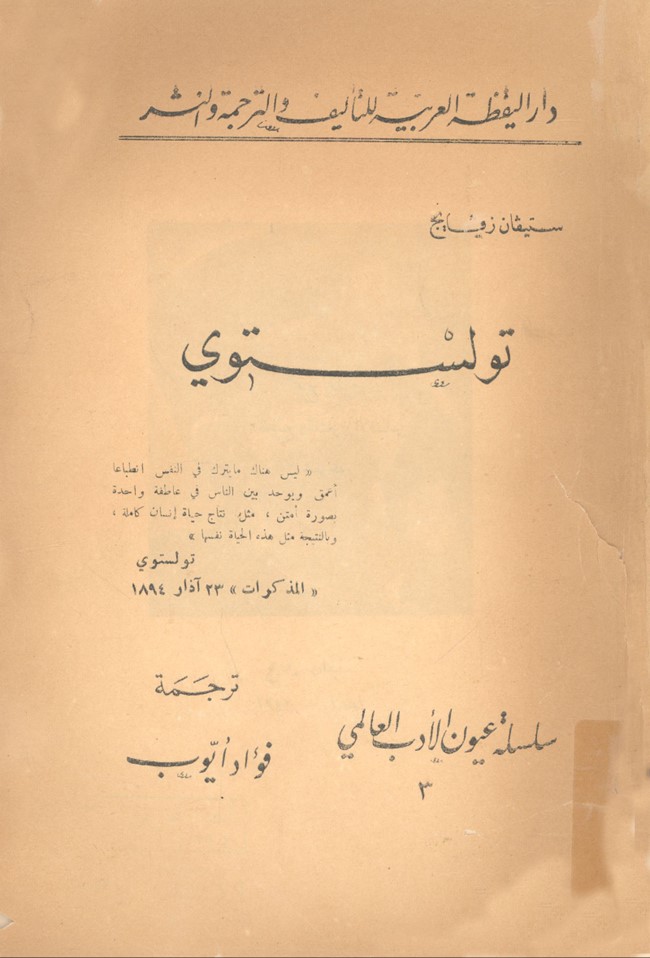 دار اليقظة العربية للتأليف والترجمة والنشر
ستيفان زفايج
تولستوي
« ليس هناك مايترك في النفس انطباعا
أعمق ويوحد بين الناس في عاطفة واحدة
بصورة أمتن ، مثل نتاج حياة إنسان كاملة ،
وبالنتيجة مثل هذه الحياة نفسها »
تولستوي
« المذكرات » ٢٣ آذار ١٨٩٤
ترجمة
فؤاد أيّوب
سلسلة عيون الأدب العالمي
٣